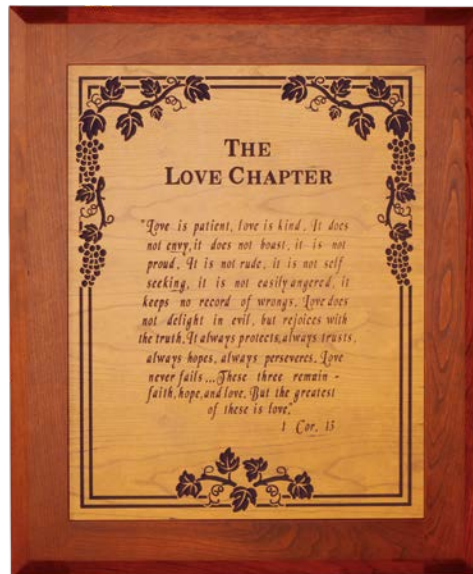 THE
LOVE CHAPTER
"Love is patient, love is kind. It does
not envy, it does not boast, it is not
proud. It is not rude, it is not self
seeking, it is not easily angered, it
keeps no record of wrongs. Love does
not delight in evil, but rejoices with
the truth. It always protects, always trusts,
always hopes, always perseveres. Love
never fails...These three remain -
faith, hope, and love. But the greatest
of these is love."
1 Cor. 13